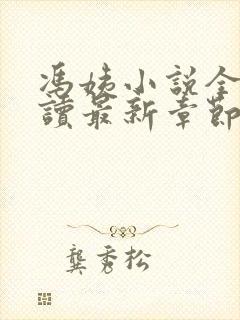 馮姨小說全
讀最新章節
龔秀松